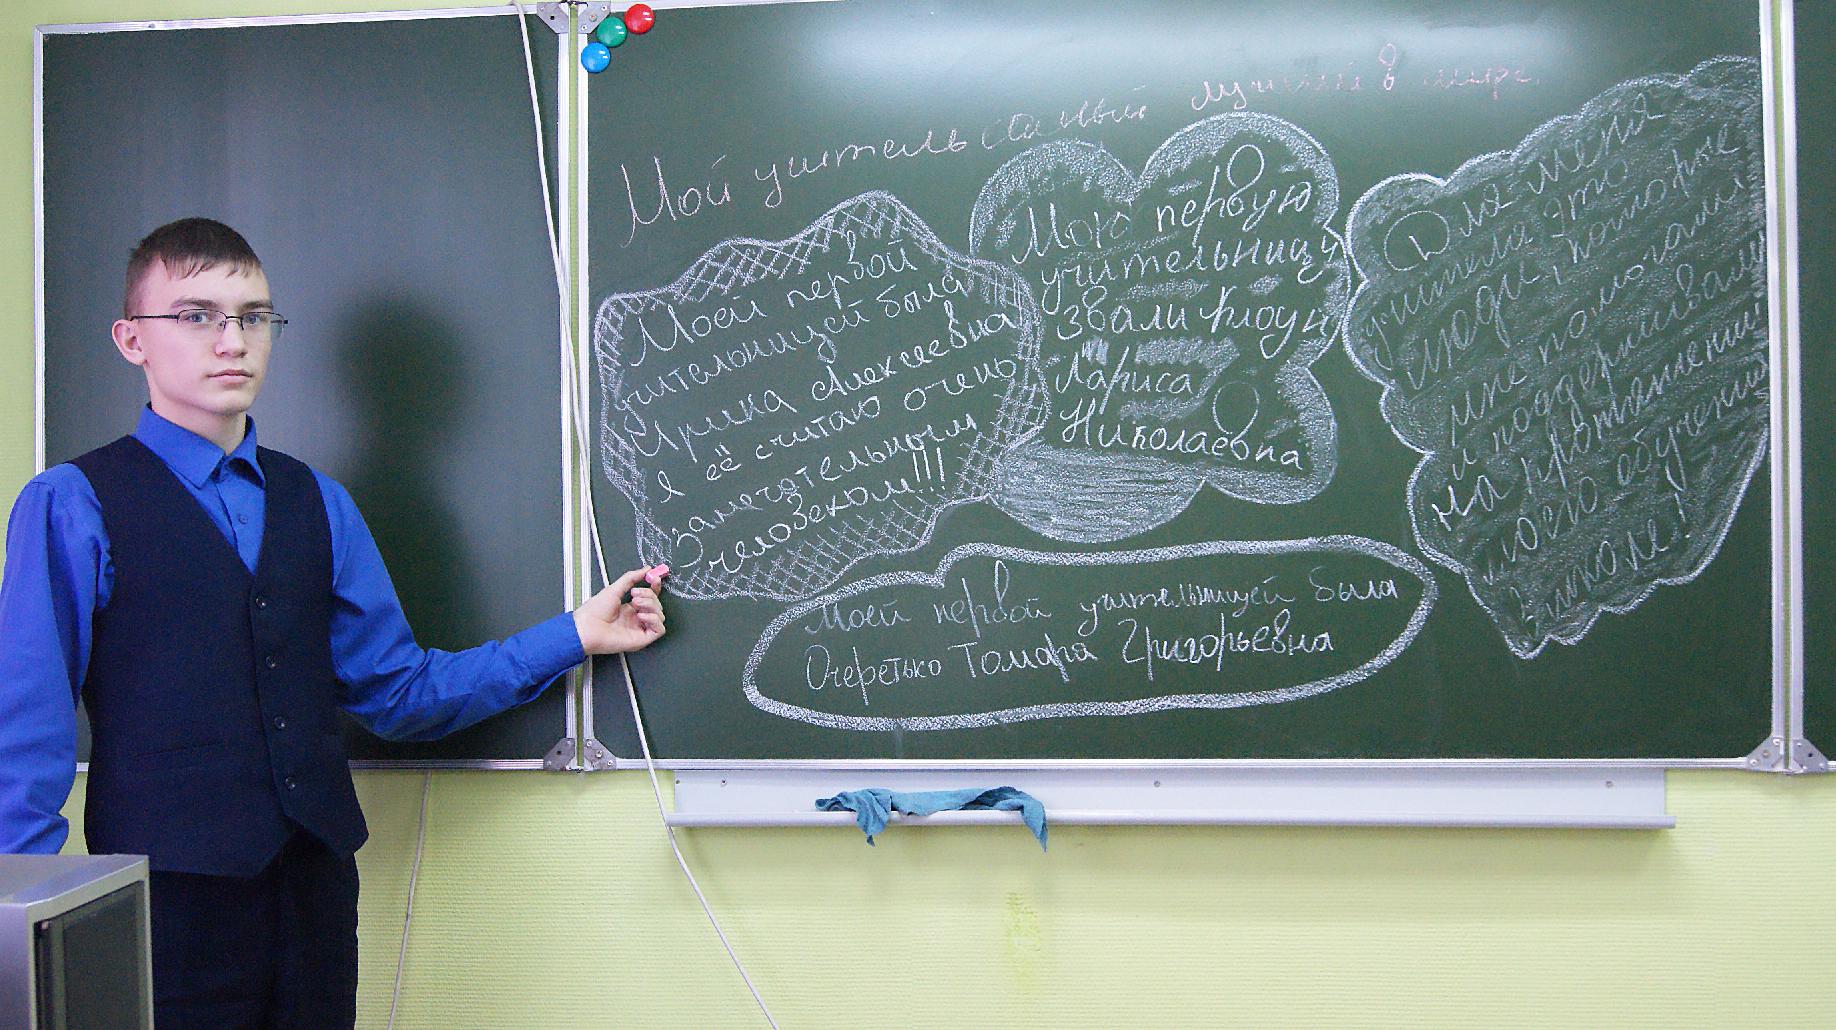 Мой учитель самый лучший в мире.
Моей первой
учительницей была
Ирина Алексеевна
я её считаю очень
замечательным
человеком!!!
Мою первую
учительницу
звали Клоун
Лариса
Николаевна
Для меня
учителя это
люди, которые
мне помогали
и поддерживали
на протяжении
моего обучения
в школе!
Моей первой учительницей была
Очеретько Томара Григорьевна